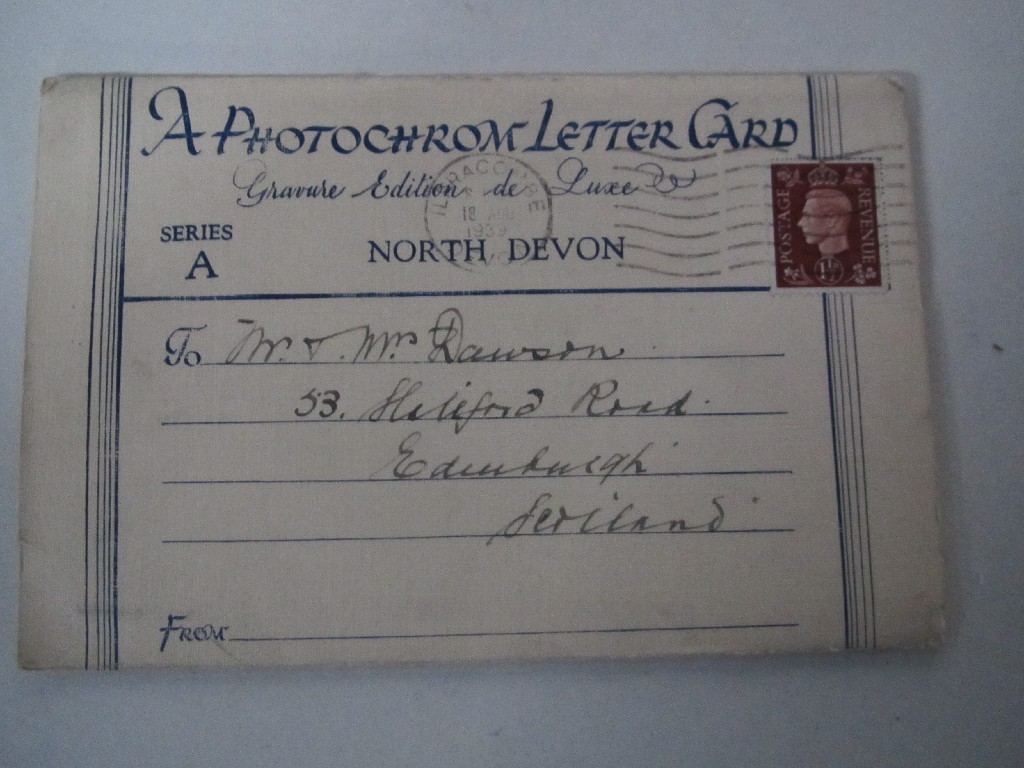 A PHOTOCHROM LETTER CARD
Gravure Edition de Luxe
ILFRACOMBE
18 AUG
1939
SERIES
A
NORTH DEVON
POSTAGE
REVENUE
1½
To Mr. & Mrs Dawson
53. Road.
Edinburgh
Scotland
FROM